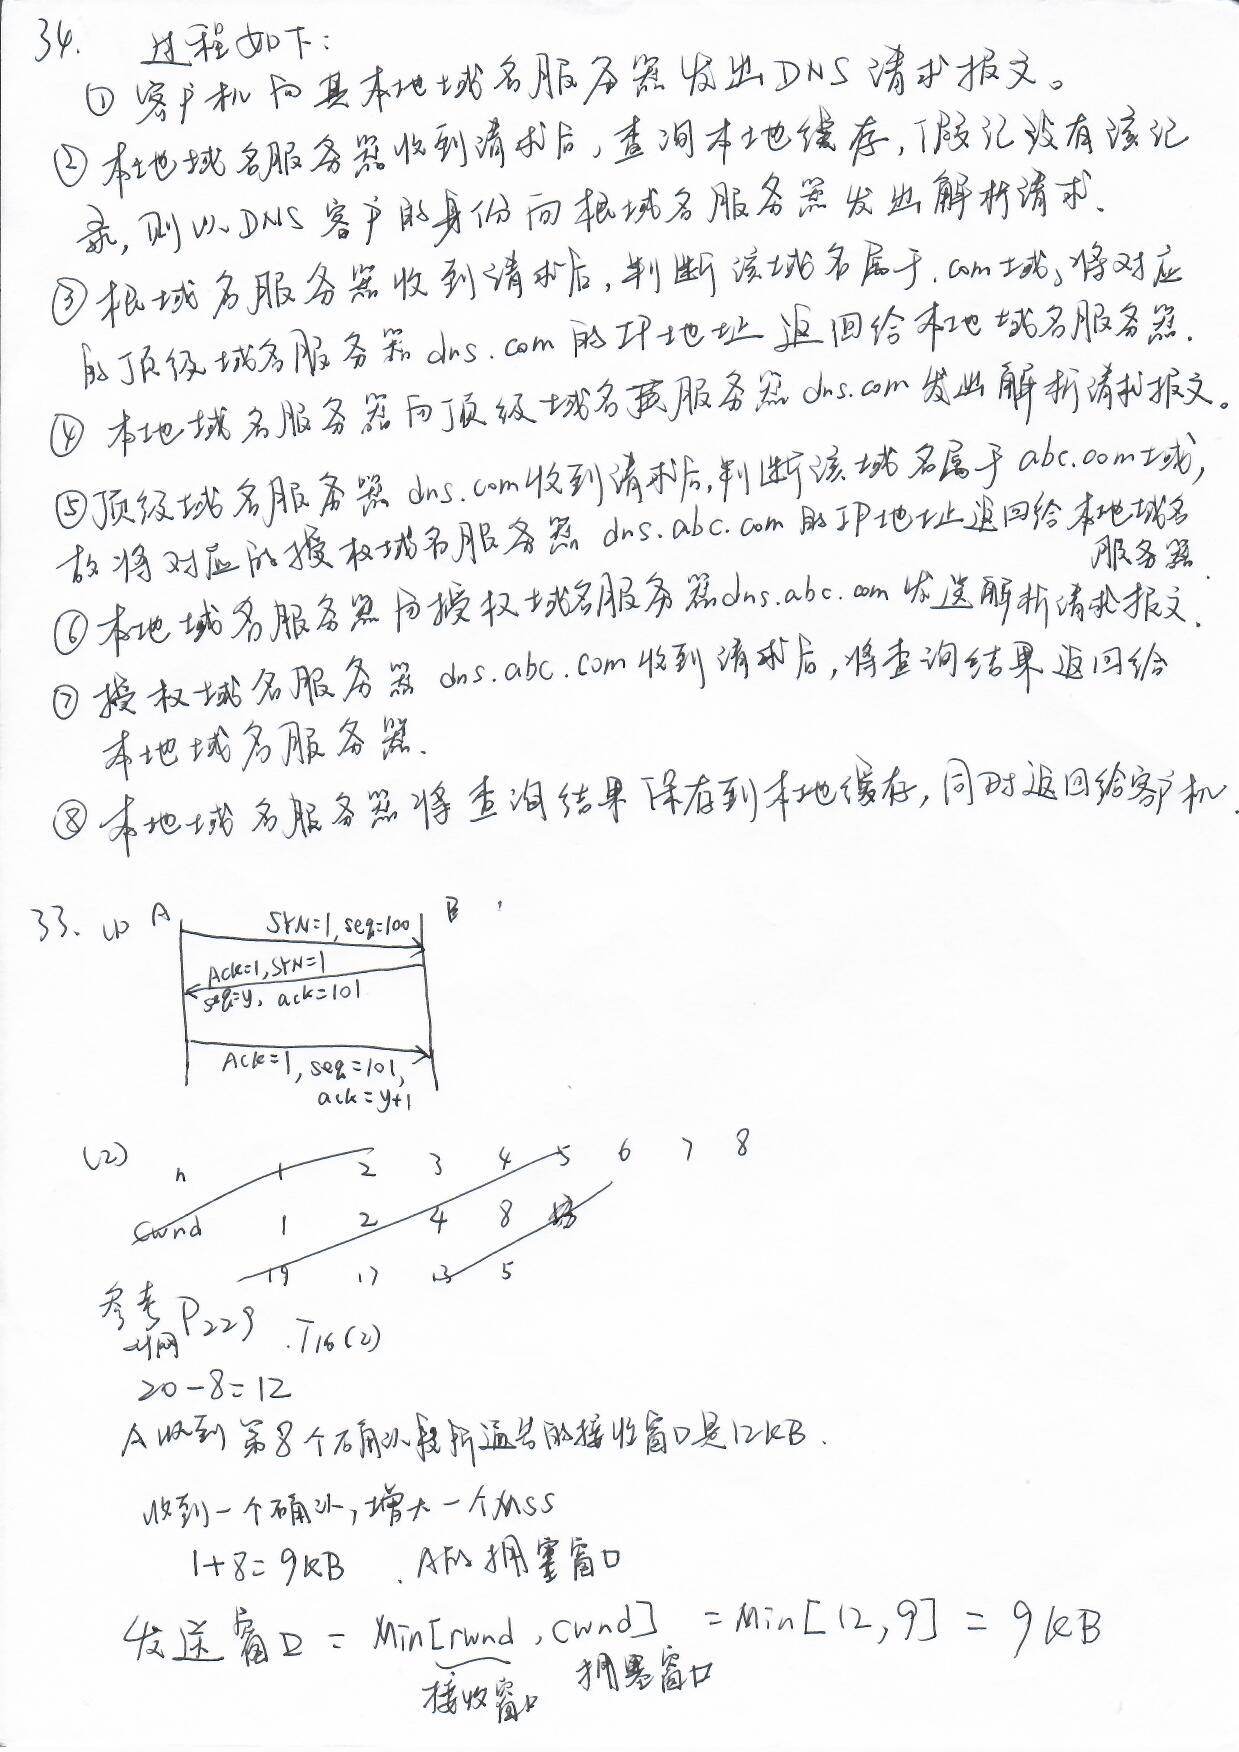 34. 过程如下:
① 客户机向其本地域名服务器发出DNS请求报文。
② 本地域名服务器收到请求后,查询本地缓存,假记没有该记
录,则以DNS客户的身份向根域名服务器发出解析请求.
③ 根域名服务器收到请求后,判断该域名属于.com域,将对应
的顶级域名服务器dns.com的IP地址返回给本地域名服务器.
④ 本地域名服务器向顶级域名服务器dns.com发出解析请求报文。
⑤ 顶级域名服务器dns.com收到请求后,判断该域名属于abc.com域,
故将对应的授权域名服务器dns.abc.com的IP地址返回给本地域名
服务器.
⑥ 本地域名服务器向授权域名服务器dns.abc.com发送解析请求报文.
⑦ 授权域名服务器dns.abc.com收到请求后,将查询结果返回给
本地域名服务器.
⑧ 本地域名服务器将查询结果保存到本地缓存,同时返回给客户机.
33. (1) A B
SYN=1, seq=100
Ack=1, SYN=1
seq=y, ack=101
Ack=1, seq=101,
ack=y+1
(2) n 1 2 3 4 5 6 7 8
cwnd 1 2 4 8
19 17 13 5
参考 P229 .T16(2)
计网
20-8=12
A收到第8个确认段所通告的接收窗口是12KB.
收到一个确认,增大一个MSS
1+8=9KB . A的拥塞窗口
发送窗口 = Min[rwnd, cwnd] = Min[12,9] = 9KB
接收窗口 拥塞窗口